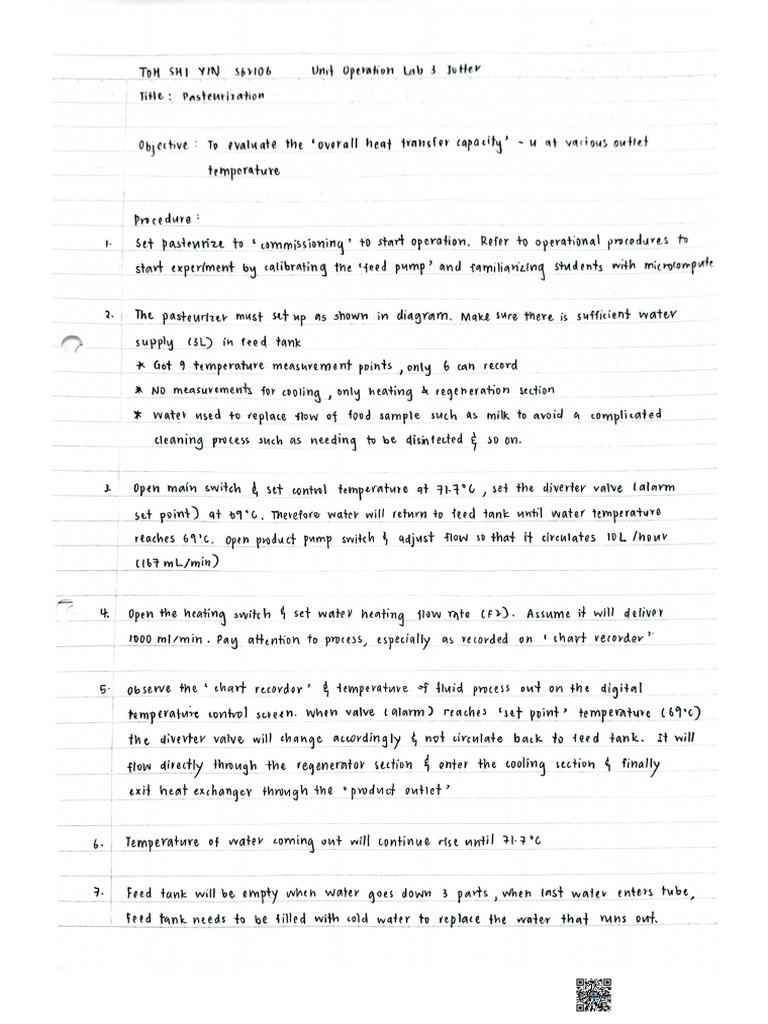 TOH SHI YIN S62106 Unit Operation Lab 3 Jotter
Title : Pasteurization
Objective : To evaluate the 'overall heat transfer capacity' - u at various outlet
temperature
Procedure :
1. Set pasteurize to 'commissioning' to start operation. Refer to operational procedures to
start experiment by calibrating the 'feed pump' and familiarizing students with microcompute
2. The pasteurizer must set up as shown in diagram. Make sure there is sufficient water
supply (3L) in feed tank
* Got 9 temperature measurement points, only 6 can record
* No measurements for cooling, only heating & regeneration section
* Water used to replace flow of food sample such as milk to avoid a complicated
cleaning process such as needing to be disinfected & so on.
3. Open main switch & set control temperature at 71.7°C, set the diverter valve (alarm
set point) at 69°C. Therefore water will return to feed tank until water temperature
reaches 69°C. Open product pump switch & adjust flow so that it circulates 10L/hour
(167 mL/min)
4. Open the heating switch & set water heating flow rate (F2). Assume it will deliver
1000 ml/min. Pay attention to process, especially as recorded on 'chart recorder'.
5. Observe the 'chart recordor' & temperature of fluid process out on the digital
temperature control screen. When valve (alarm) reaches 'set point' temperature (69°C)
the diverter valve will change accordingly & not circulate back to feed tank. It will
flow directly through the regenerator section & enter the cooling section & finally
exit heat exchanger through the "product outlet"
6. Temperature of water coming out will continue rise until 71.7°C
7. Feed tank will be empty when water goes down 3 parts, when last water enters tube,
Feed tank needs to be filled with cold water to replace the water that runs out.